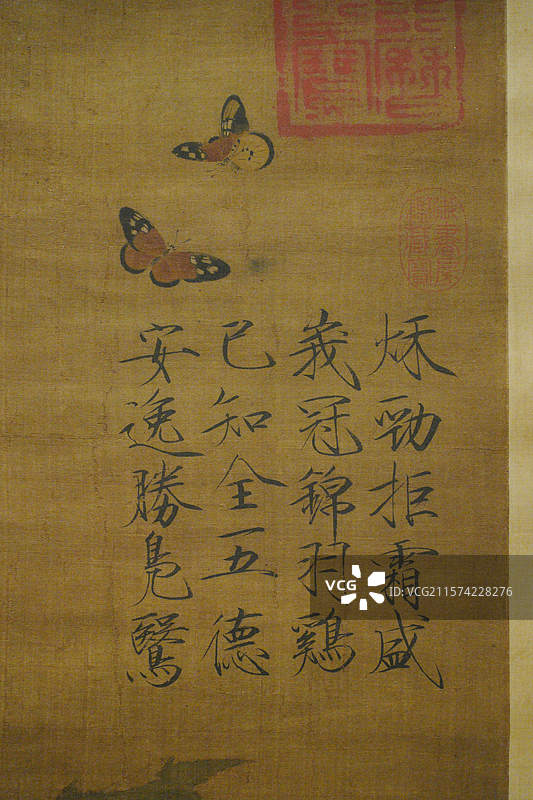 秋勁拒霜盛
峩冠錦羽鷄
已知全五德
安逸勝鳧鷖
VCG
ID: VCG211574228276